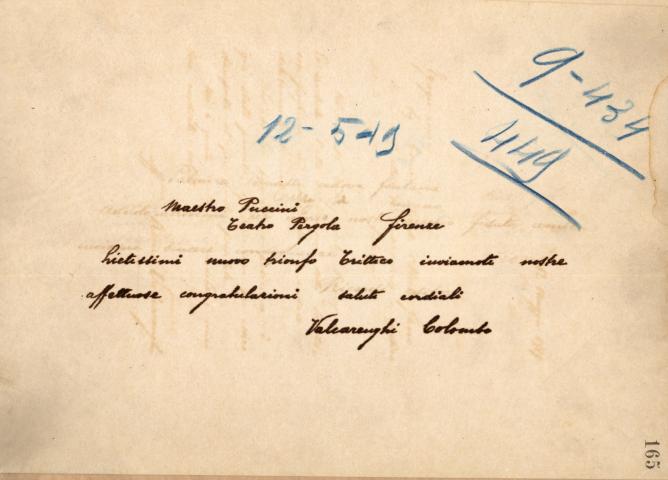 9-434
449
12-5-19
Maestro Puccini
Teatro Pergola Firenze
Lietissimi nuovo trionfo Trittico inviamoti nostre
affettuose congratulazioni saluti cordiali
Valcarenghi Colombo
165